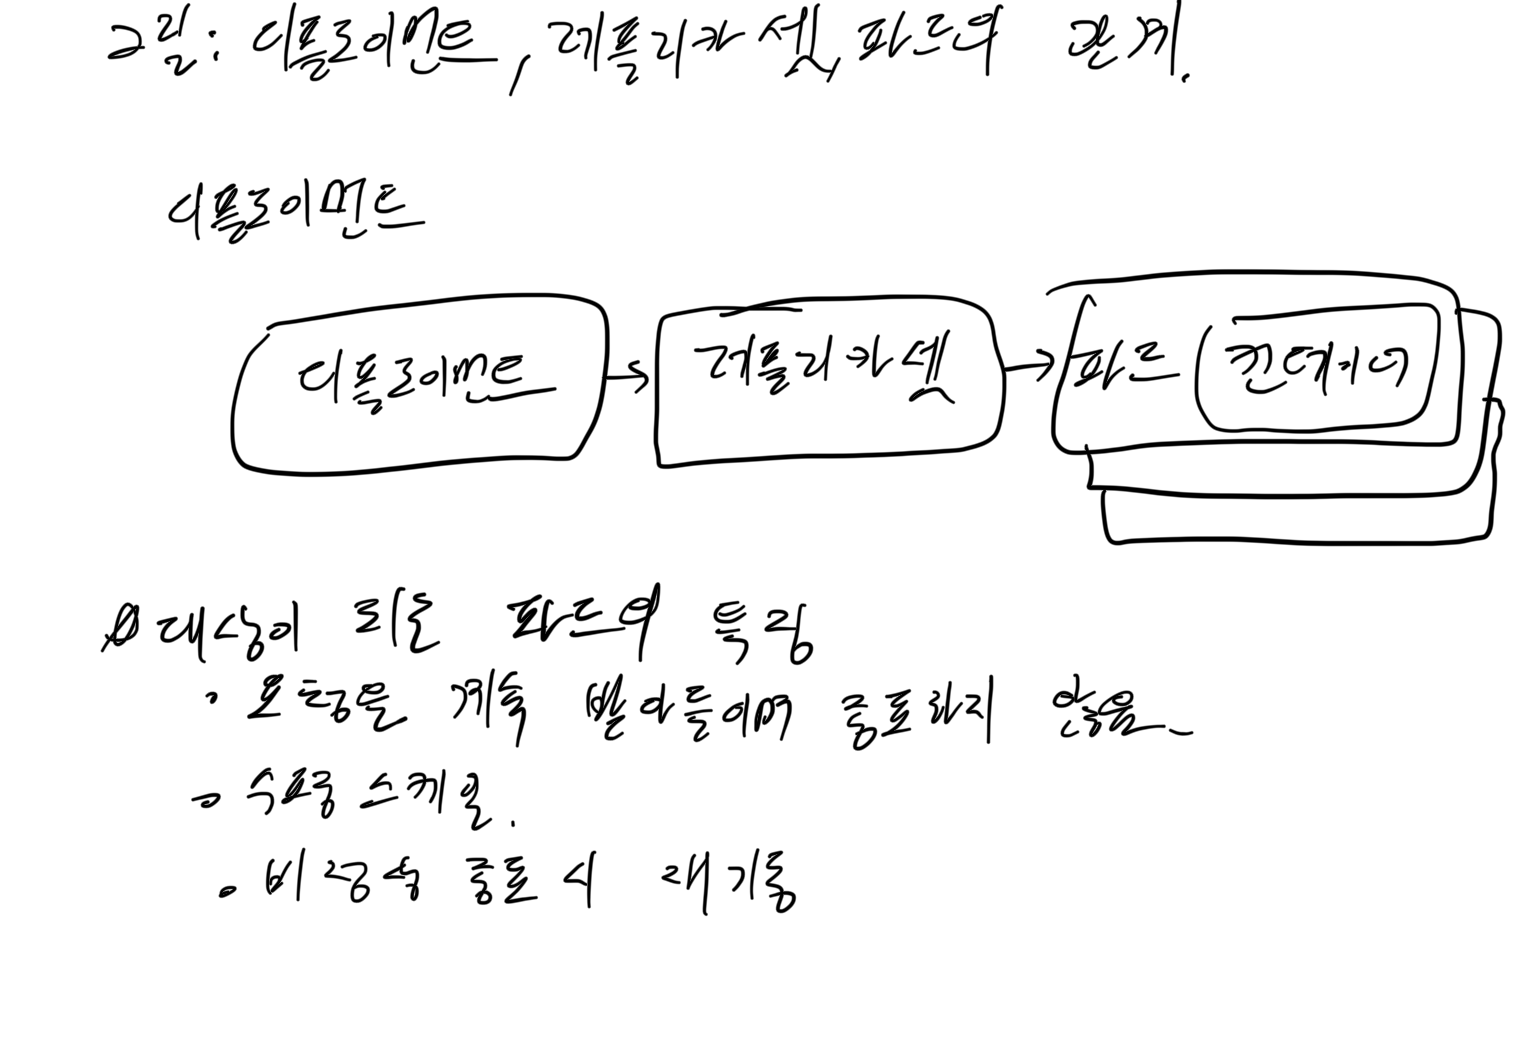 그림: 디플로이먼트, 레플리카 셋, 파드의 관계.
디플로이먼트
디플로이먼트 → 레플리카 셋 → 파드 컨테이너
대상이 되는 파드의 특징
• 요청을 계속 받아들이며 종료하지 않음
• 수평 스케일.
• 비정상 종료 시 재기동